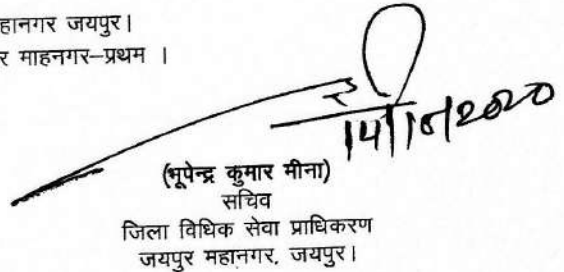 हानगर जयपुर।
र माहनगर–प्रथम ।
(भूपेन्द्र कुमार मीना)
सचिव
जिला विधिक सेवा प्राधिकरण
जयपुर महानगर, जयपुर।